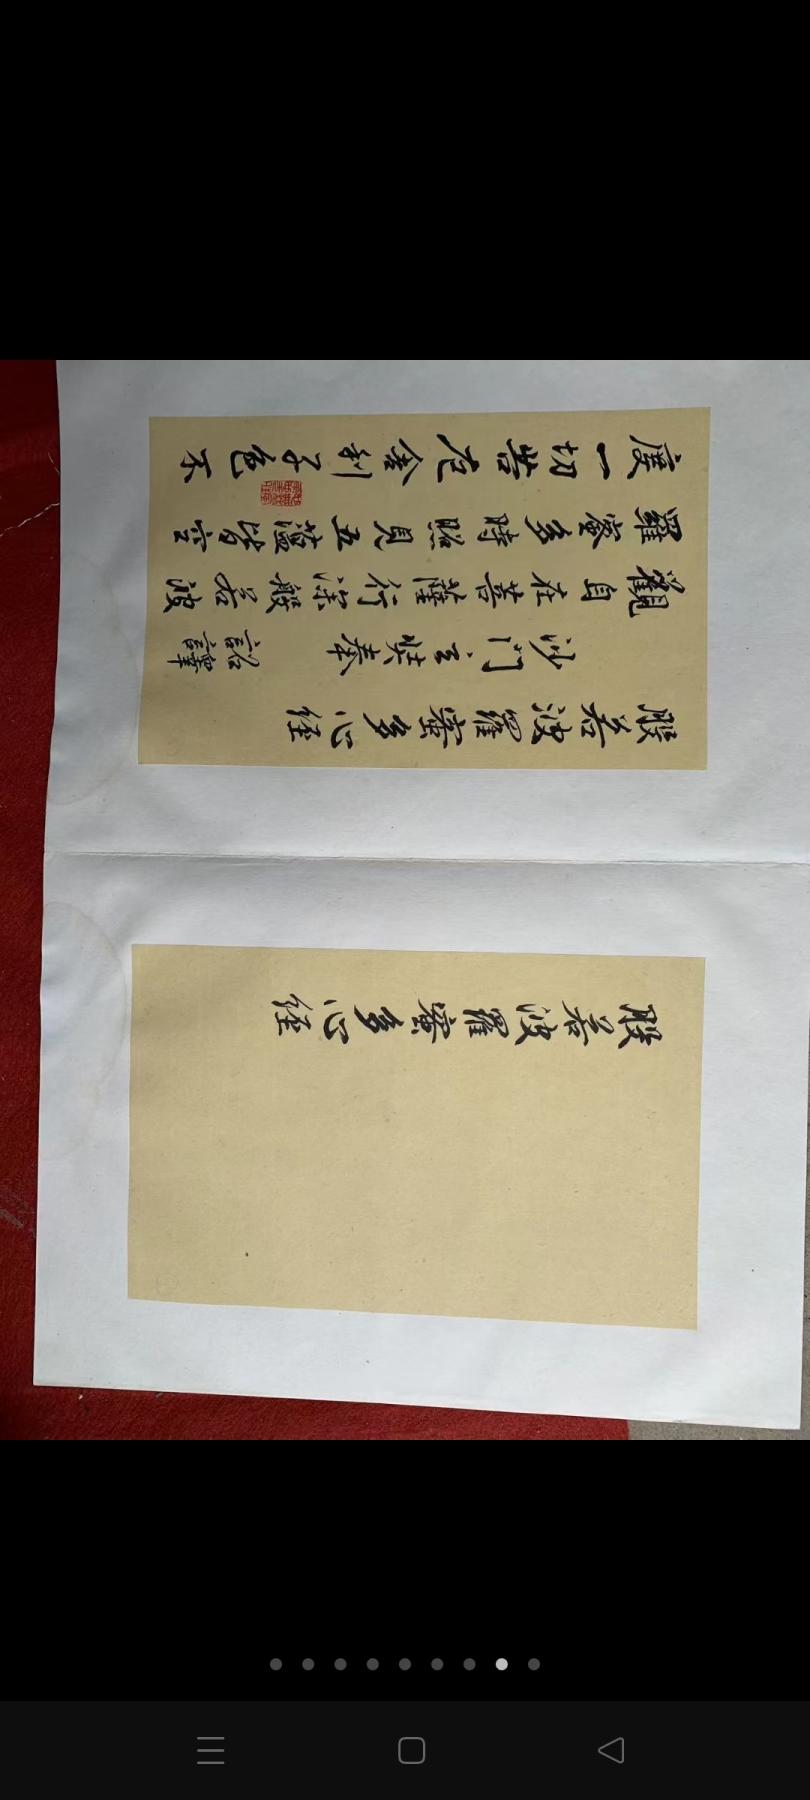 般若波羅蜜多心经
般若波羅蜜多心经
沙門玄奘奉 詔譯
觀自在菩薩行深般若波
羅蜜多時照見五蘊皆空
度一切苦厄舍利子色不